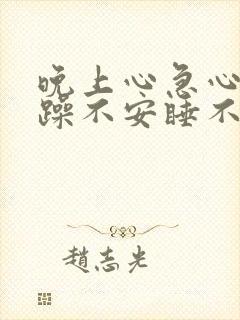 晚上心急心
躁不安睡不
趙志光